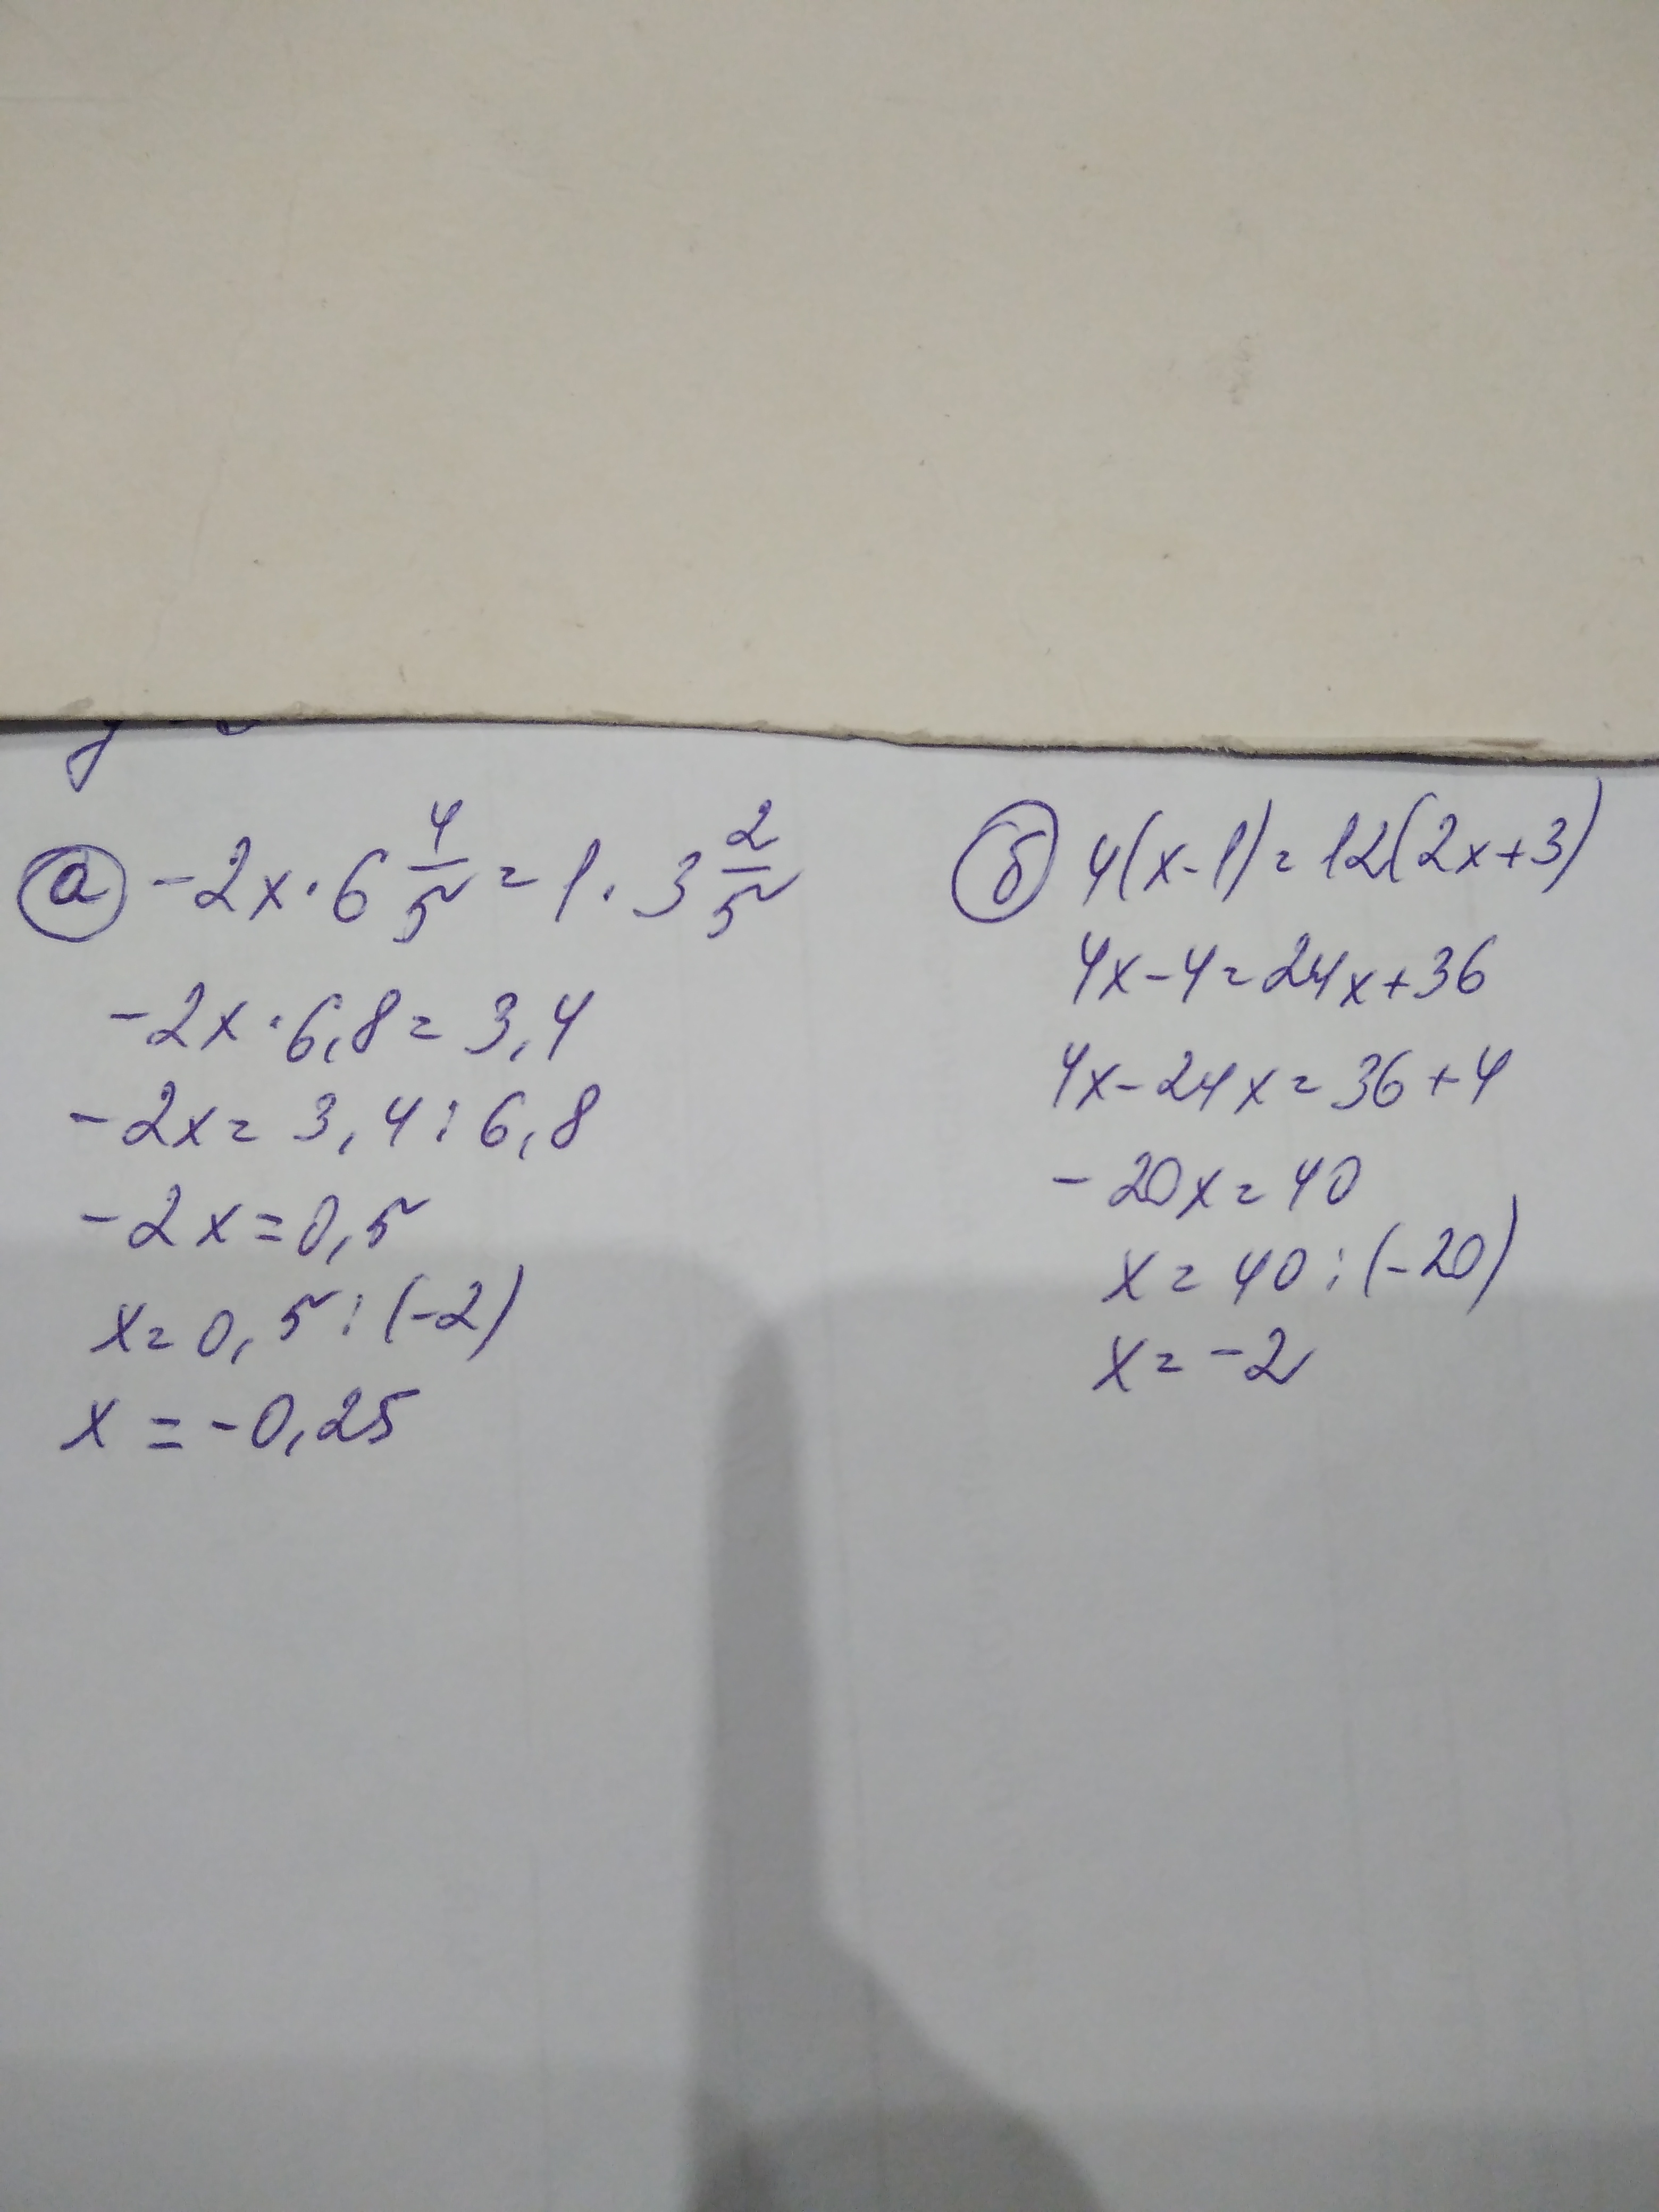 а -2x·6 4/5=1·3 2/5
-2x·6,8=3,4
-2x=3,4:6,8
-2x=0,5
x=0,5:(-2)
x=-0,25
б 4(x-1)=12(2x+3)
4x-4=24x+36
4x-24x=36+4
-20x=40
x=40:(-20)
x=-2